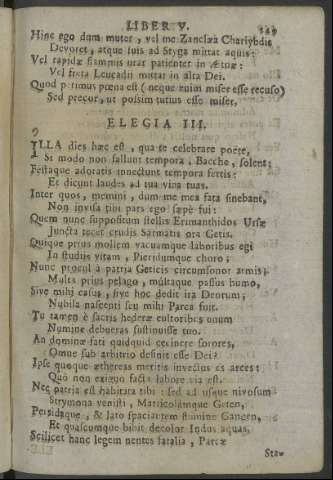 LIBER V.
149
Hinc ego dum muter, vel me Zanclæa Charybdis
Devoret, atque suis ad Styga mittat aquis:
Vel rapidæ flammis urar patienter in Ætnæ:
Vel freta Leucadii mittar in alta Dei.
Quod petimus pœna est (neque enim miser esse recuso)
Sed precor, ut possim tutius esse miser.
ELEGIA III.
ILLA dies hæc est, qua te celebrare poetæ,
Si modo non fallunt tempora, Bacche, solent:
Festaque adoratis innectunt tempora sertis:
Et dicunt laudes ad tua vina tuas.
Inter quos, memini, dum me mea fata sinebant,
Non invisa tibi pars ego sæpè fui:
Quem nunc suppositum stellis Erimanthidos Ursæ
Juncta tecet crudis Sarmatis ora Getis.
Quique prius mollem vacuumque laboribus egi
In studiis vitam, Pieridumque choro;
Nunc procul à patria Geticis circumsonor armis;
Multa prius pelago, multaque passus humo,
Sive mihi casus, sive hoc dedit ira Deorum;
Nubila nascenti seu mihi Parca fuit.
Tu tamen è sacris hederæ cultoribus unum
Numine debueras sustinuisse tuo.
An dominæ fati quidquid cecinere sorores,
Omne sub arbitrio desinit esse Dei?
Ipse quoque æthereas meritis invectus es arces:
Quò non exiguo facta labore via est.
Nec patria est habitata tibi: sed ad usque nivosum
Strymona venisti, Marticolamque Geten,
Persidaque, & lato spaciantem flumine Gangen,
Et quascumque bibit decolor Indus aquas,
Scilicet hanc legem nentes fatalia, Parcæ
Sta-